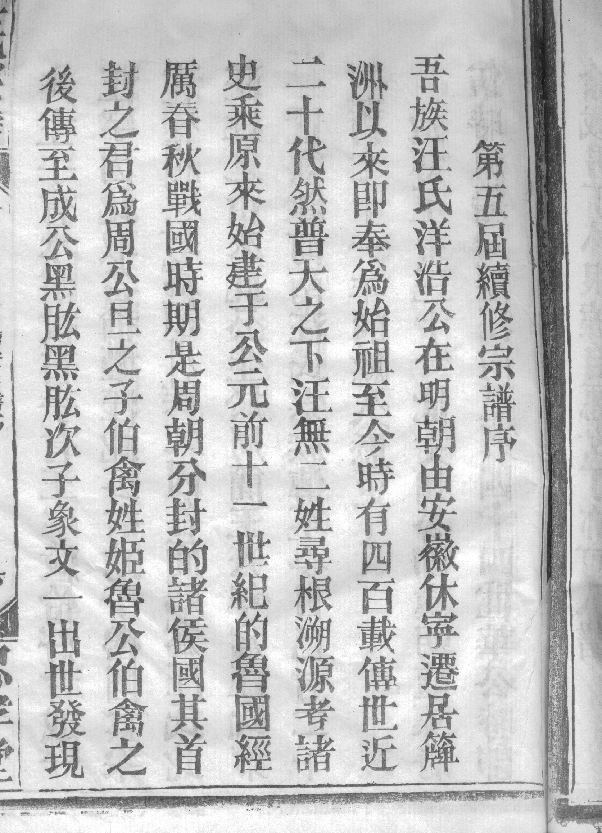 第五屆續修宗譜序
吾族汪氏洋浩公在明朝由安徽休寧遷居簰
洲以來即奉爲始祖至今時有四百載傳世近
二十代然普大之下汪無二姓尋根溯源考諸
史乘原來始建于公元前十一世紀的魯國經
厲春秋戰國時期是周朝分封的諸侯國其首
封之君爲周公旦之子伯禽姓姬魯公伯禽之
後傳至成公黑肱黑肱次子象文一出世發現